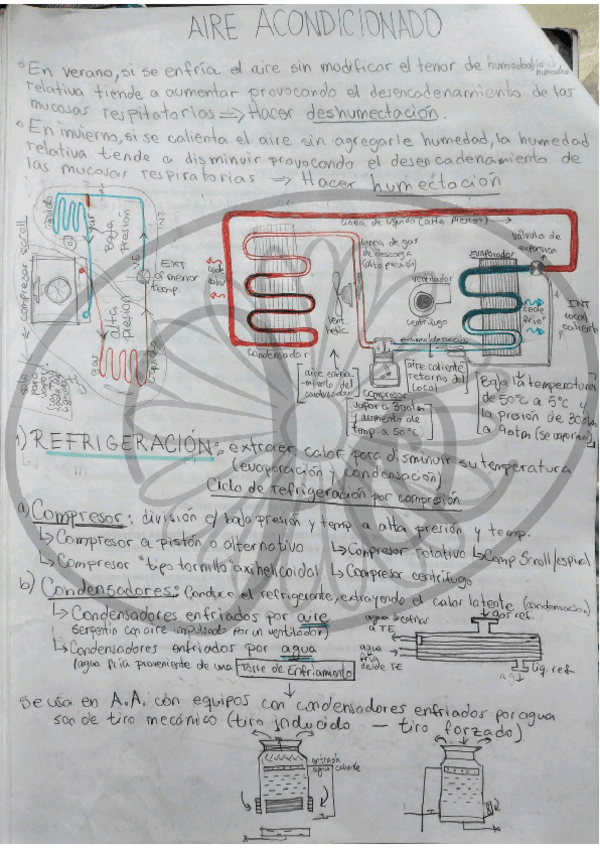 AIRE ACONDICIONADO
° En verano, si se enfría el aire sin modificar el tenor de humedad, la humedad
relativa tiende a aumentar provocando el desencadenamiento de las
mucosas respitatorias ⇒ Hacer deshumectación.
° En invierno, si se calienta el aire sin agregarle humedad, la humedad
relativa tende a disminuir provocando el desencadenamiento de
las mucosas respiratorias ⇒ Hacer humectación
compresor scroll
líquido
gas
Baja presión
INT
VE
EXT
a menor temp.
alta presión
gas
líquido
solo para
línea de líquido (alta presión)
línea de gas de descarga (alta presión)
cede calor
vent. helic
condensador
ventilador
centrífugo
evaporador
válvula de expansion
cede "frio"
INT local caliente
línea de succión
aire enfriamiento del condensador
compresor
vapor a 30atm y aumento de temp a 50°c
aire caliente retorno del local
Baja la temperatura
de 50°c a 5°c y
la presión de 30atm
a 9atm (se evapora)
1) REFRIGERACIÓN: extraer calor para disminuir su temperatura
(evaporación y condensación)
Ciclo de refrigeración por compresión
a) Compresor: división e/ baja presión y temp a alta presión y temp.
↳ Compresor a pistón o alternativo ↳ Compresor rotativo ↳ Comp Scroll/espiral
↳ Compresor "tipo tornillo" axihelicoidal ↳ Compresor centrífugo
b) Condensadores: Conduce el refrigerante, extrayendo el calor latente (condensación)
↳ Condensadores enfriados por aire
Serpentin con aire impulsado por un ventilador)
↳ Condensadores enfriados por agua
(agua fria proveniente de una Torre de Enfriamiento
agua a enfriar a TE
gas ref.
agua fria desde TE
liq. ref.
Se usa en A.A. con equipos con condensadores enfriados por agua
son de tiro mecánico (tiro inducido — tiro forzado)
entrada
agua caliente